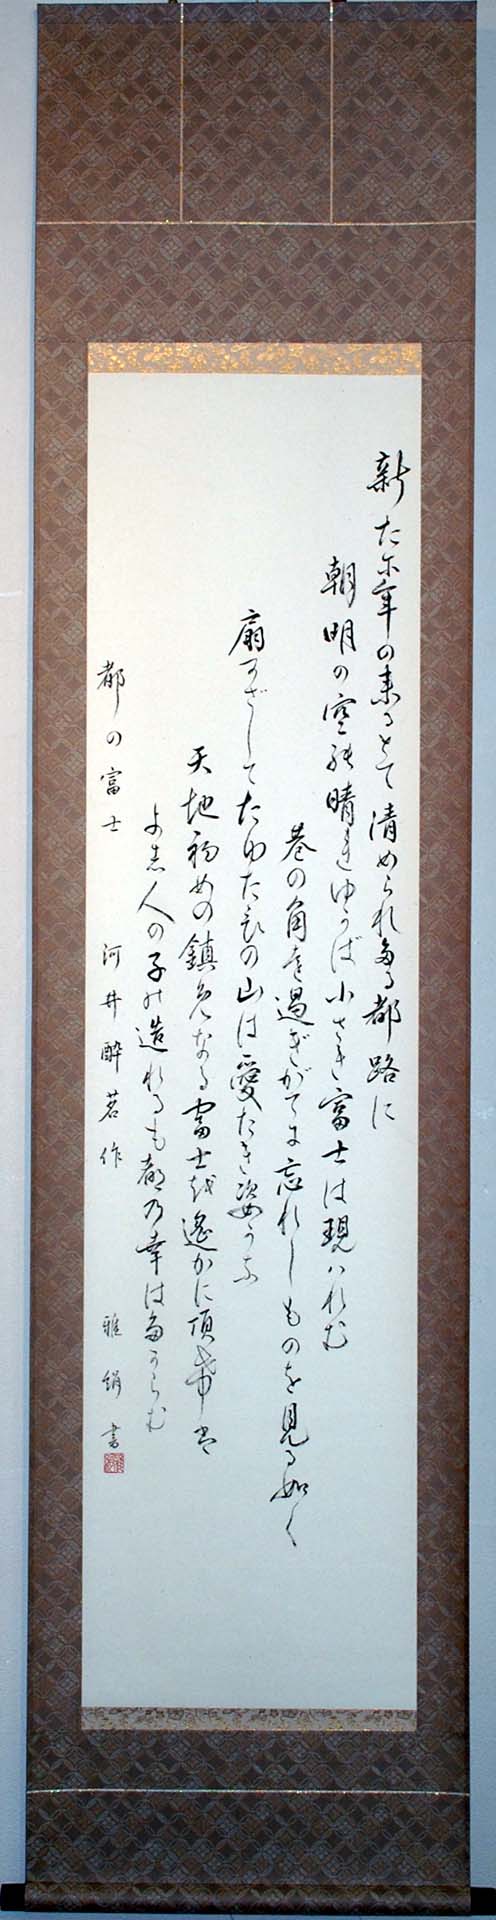 新たな年の来るとて清められたる都路に
朝明の空能晴れゆかば小さき富士は現ハれむ
巷の角を過ぎがてに忘れしものを見る如く
扇かざしてたゆたひの山は愛たき姿かな
天地初めの鎮めなる富士を遙かに頂
よし人の子の造れるも都乃幸は多からむ
都の富士 河井酔茗作
雅 書